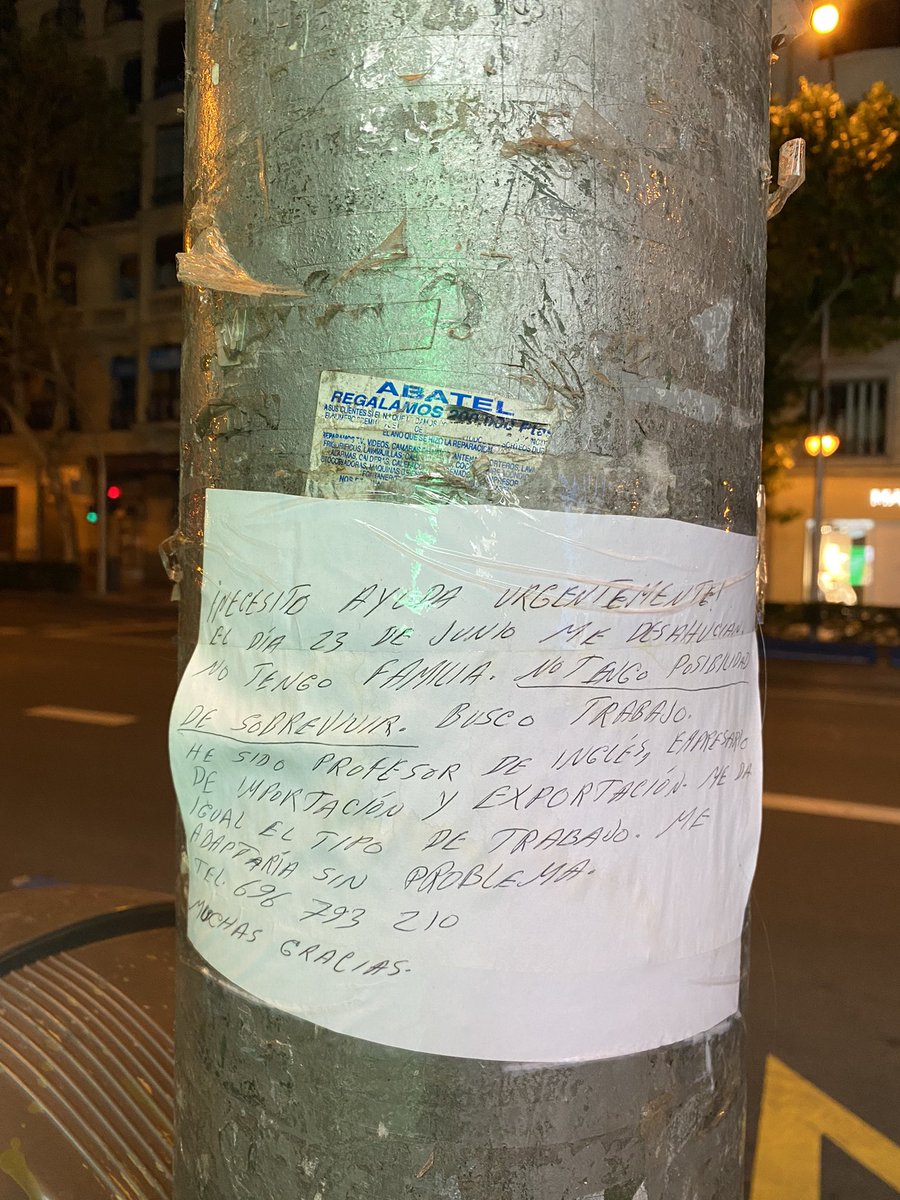 ABATEL
REGALAMOS 200.000 Pts
REPARAMOS TV, VIDEOS, CAMARAS
¡NECESITO AYUDA URGENTEMENTE!
EL DÍA 23 DE JUNIO ME DESAHUCIAN.
NO TENGO FAMILIA. NO TENGO POSIBILIDAD
DE SOBREVIVIR. BUSCO TRABAJO.
HE SIDO PROFESOR DE INGLÉS, EMPRESARIO
DE IMPORTACIÓN Y EXPORTACIÓN. ME DA
IGUAL EL TIPO DE TRABAJO. ME
ADAPTARÍA SIN PROBLEMA.
TEL. 696 793 210
MUCHAS GRACIAS.